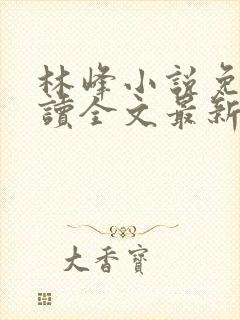 林峰小說免
讀全文最新
大香寶